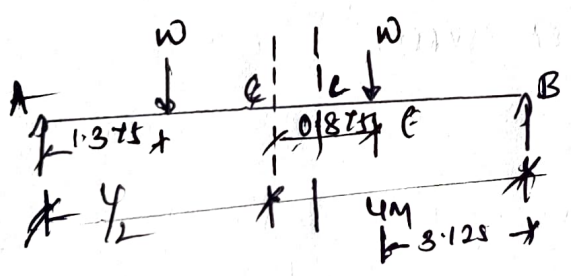 W W
A ȼ C B
1.375 0.875 E
4/2 4M
3.125